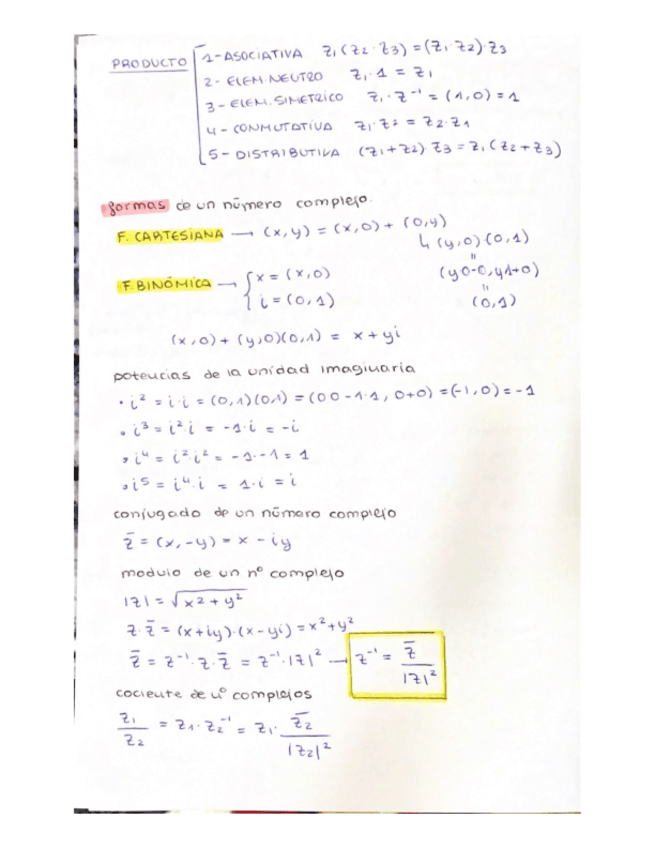 PRODUCTO
1- ASOCIATIVA z₁(z₂·z₃) = (z₁·z₂)·z₃
2- ELEM. NEUTRO z₁·1 = z₁
3- ELEM. SIMETRICO z₁·z⁻¹ = (1,0) = 1
4- CONMUTATIVA z₁·z² = z₂·z₁
5- DISTRIBUTIVA (z₁+z₂) z₃ = z₁(z₂+z₃)
formas de un número complejo.
F. CARTESIANA → (x,y) = (x,0) + (0,y)
↳ (y,0)(0,1)
"
F. BINÓMICA → { x = (x,0)
(y0-0, y1+0)
i = (0,1)
"
(0,1)
(x,0) + (y,0)(0,1) = x + yi
potencias de la unidad imaginaria
• i² = i·i = (0,1)(0,1) = (0·0 - 1·1, 0+0) = (-1,0) = -1
• i³ = i²·i = -1·i = -i
• i⁴ = i²·i² = -1·-1 = 1
• i⁵ = i⁴·i = 1·i = i
conjugado de un número complejo
z̄ = (x,-y) = x - iy
modulo de un nº complejo
|z| = √x² + y²
z·z̄ = (x+iy)·(x-yi) = x² + y²
z̄ = z⁻¹·z·z̄ = z⁻¹·|z|² → z⁻¹ = z̄ / |z|²
cociente de nº complejos
z₁ / z₂ = z₁·z₂⁻¹ = z₁· z̄₂ / |z₂|²